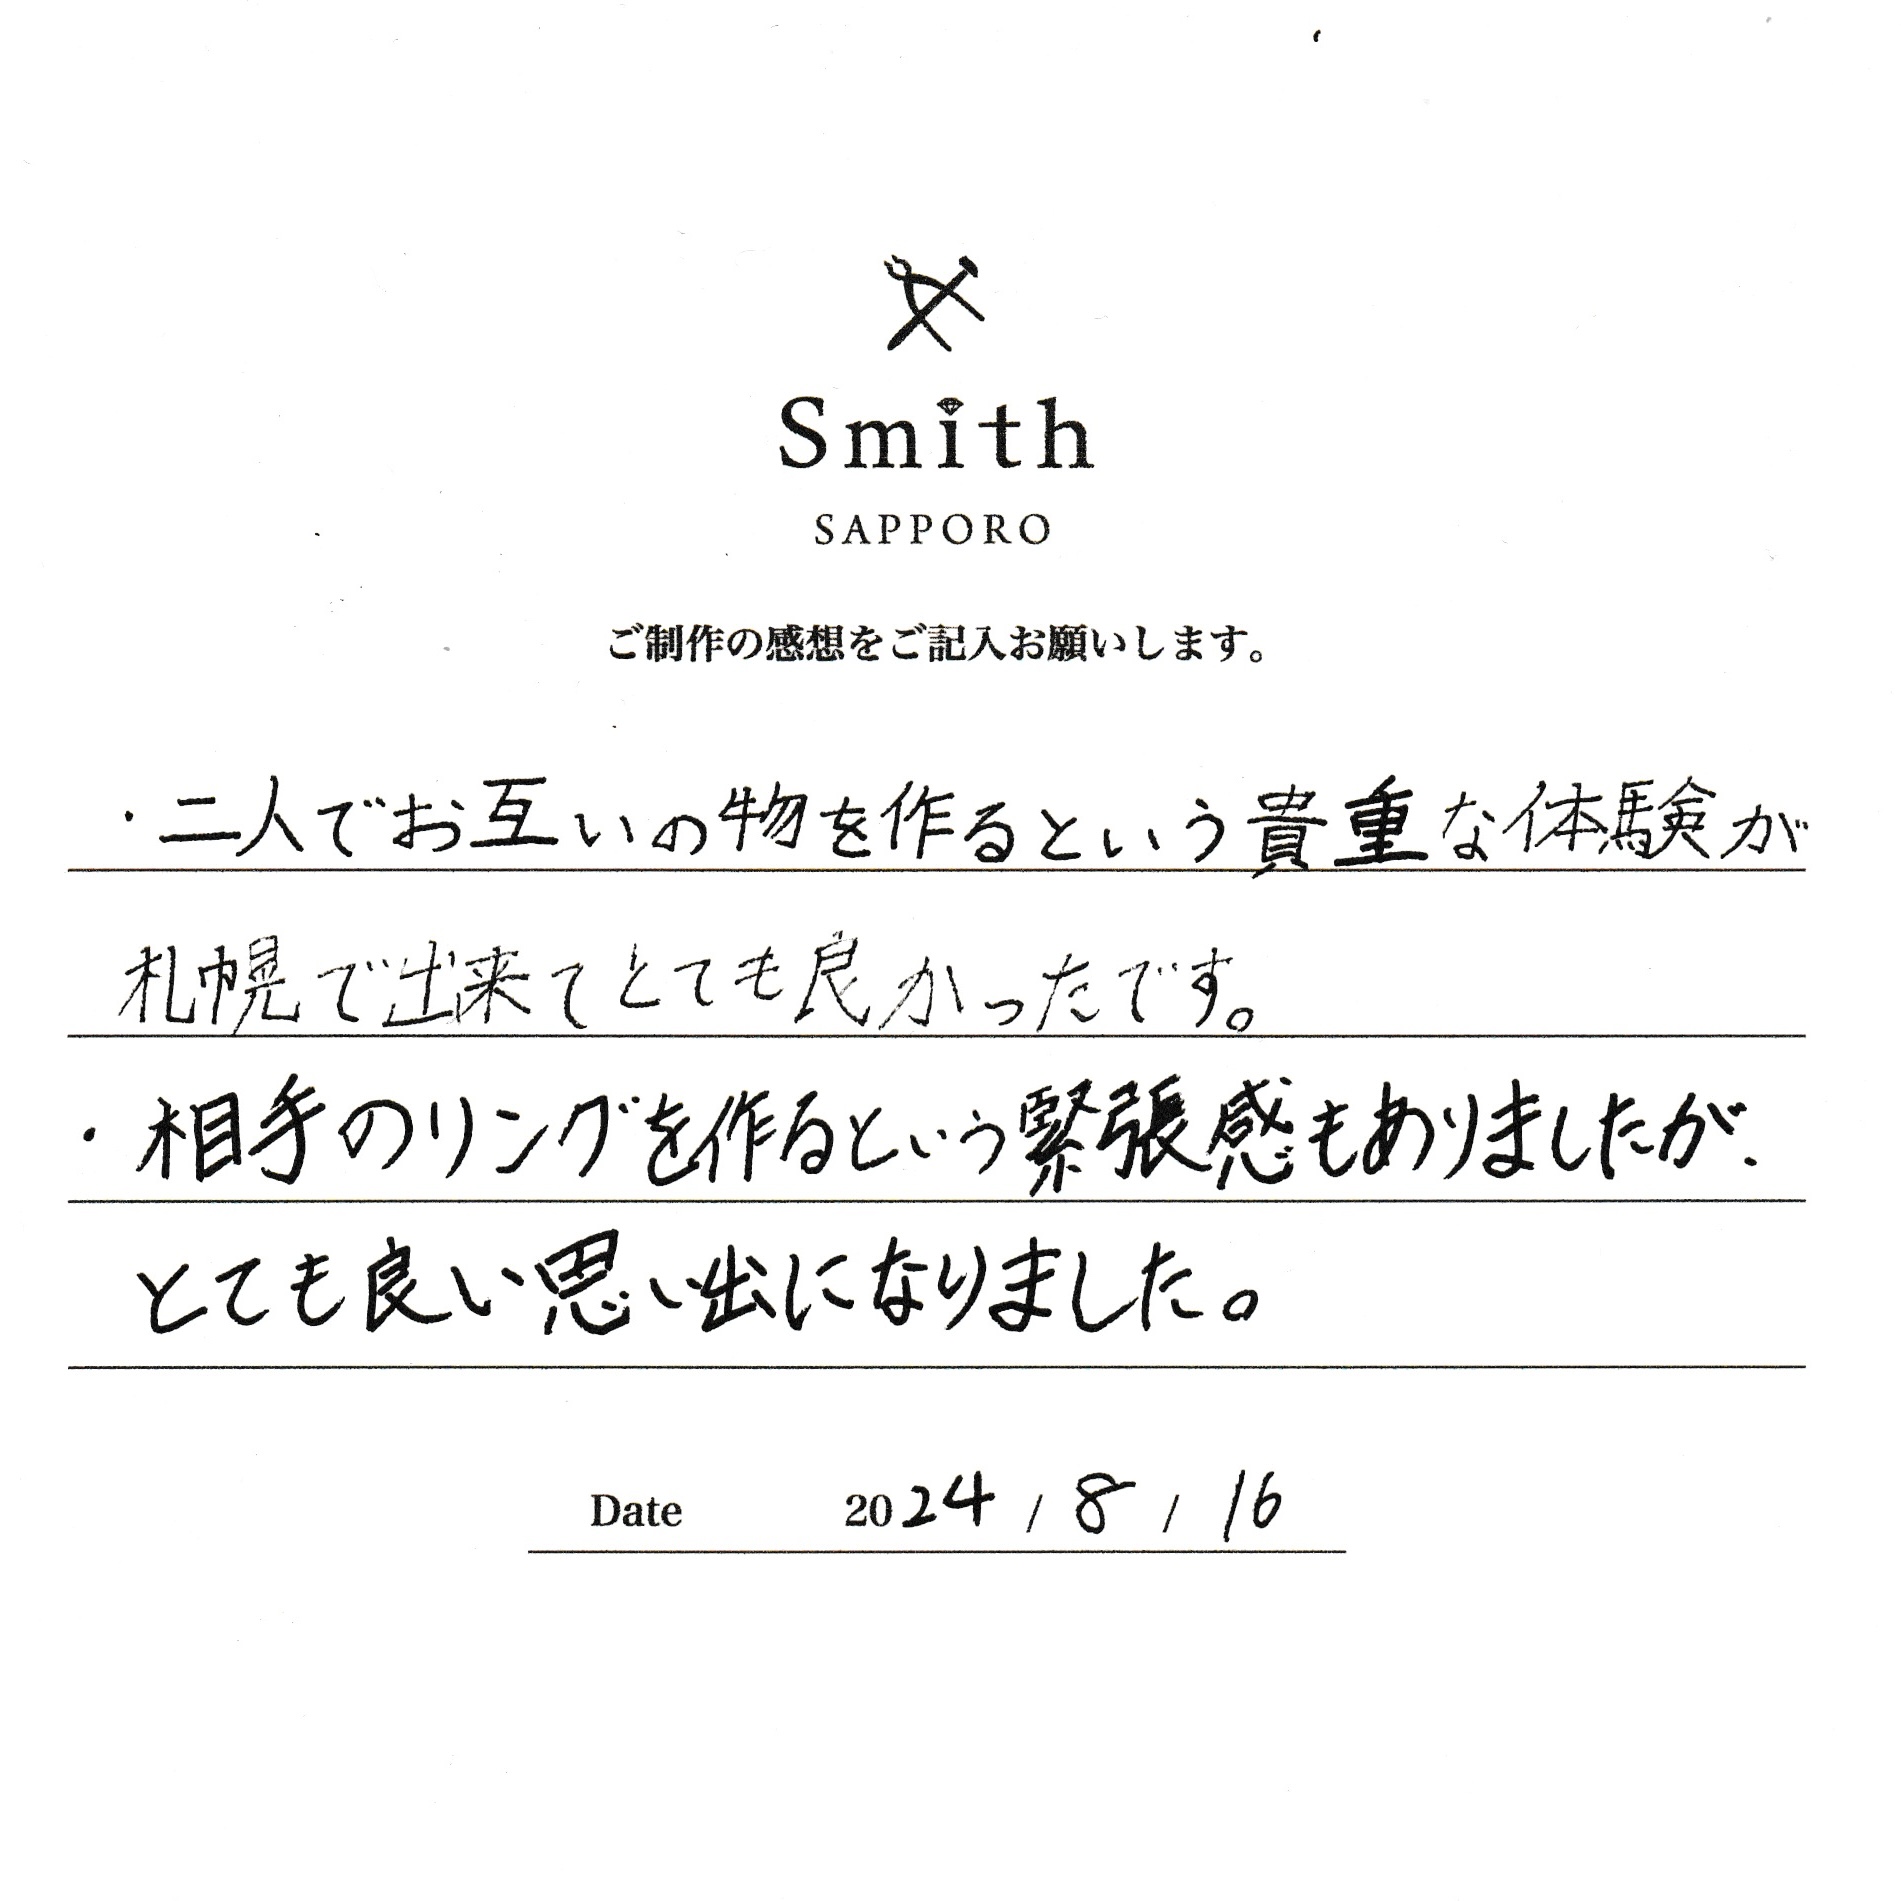 Smith
SAPPORO
ご制作の感想をご記入お願いします。
・二人でお互いの物を作るという貴重な体験が
札幌で出来てとても良かったです。
・相手のリングを作るという緊張感もありましたが、
とても良い思い出になりました。
Date 2024 / 8 / 16